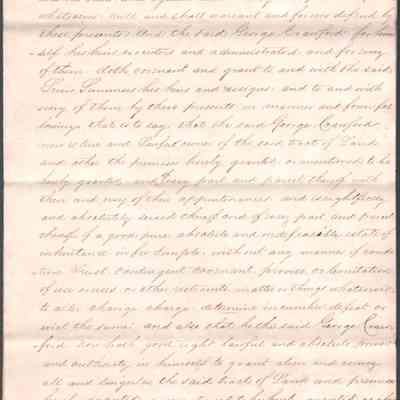 whatsoever will and shall warrant and forever defend by
these presents And the said George Crawford for him
self his heirs executors and administrators and for every
of them doth covenant and grant to and with the said
Lewis Summers his heirs and assigns and to and with
every of them by these presents in manner and form fol
lowing that is to say that the said George Crawford
now is true and lawful owner of the said tract of Land
and other the premises hereby granted or mentioned to be
hereby granted and every part and parcel thereof with
their and every of their appurtenances and is rightfully
and absolutely seized thereof and of every part and parcel
thereof of a good, pure, absolute and indefeasible estate of
inheritance in fee simple without any manner of condi
tion trust contingent covenant proviso or limitation
of use or uses or other restraint matter or things whatsoever
to alter change charge determine incumber defeat or
evict the same and also that he the said George Craw
ford now hath good right lawful and absolute power
and authority in himself to grant alien and convey
all and singular the said tract of Land and premises